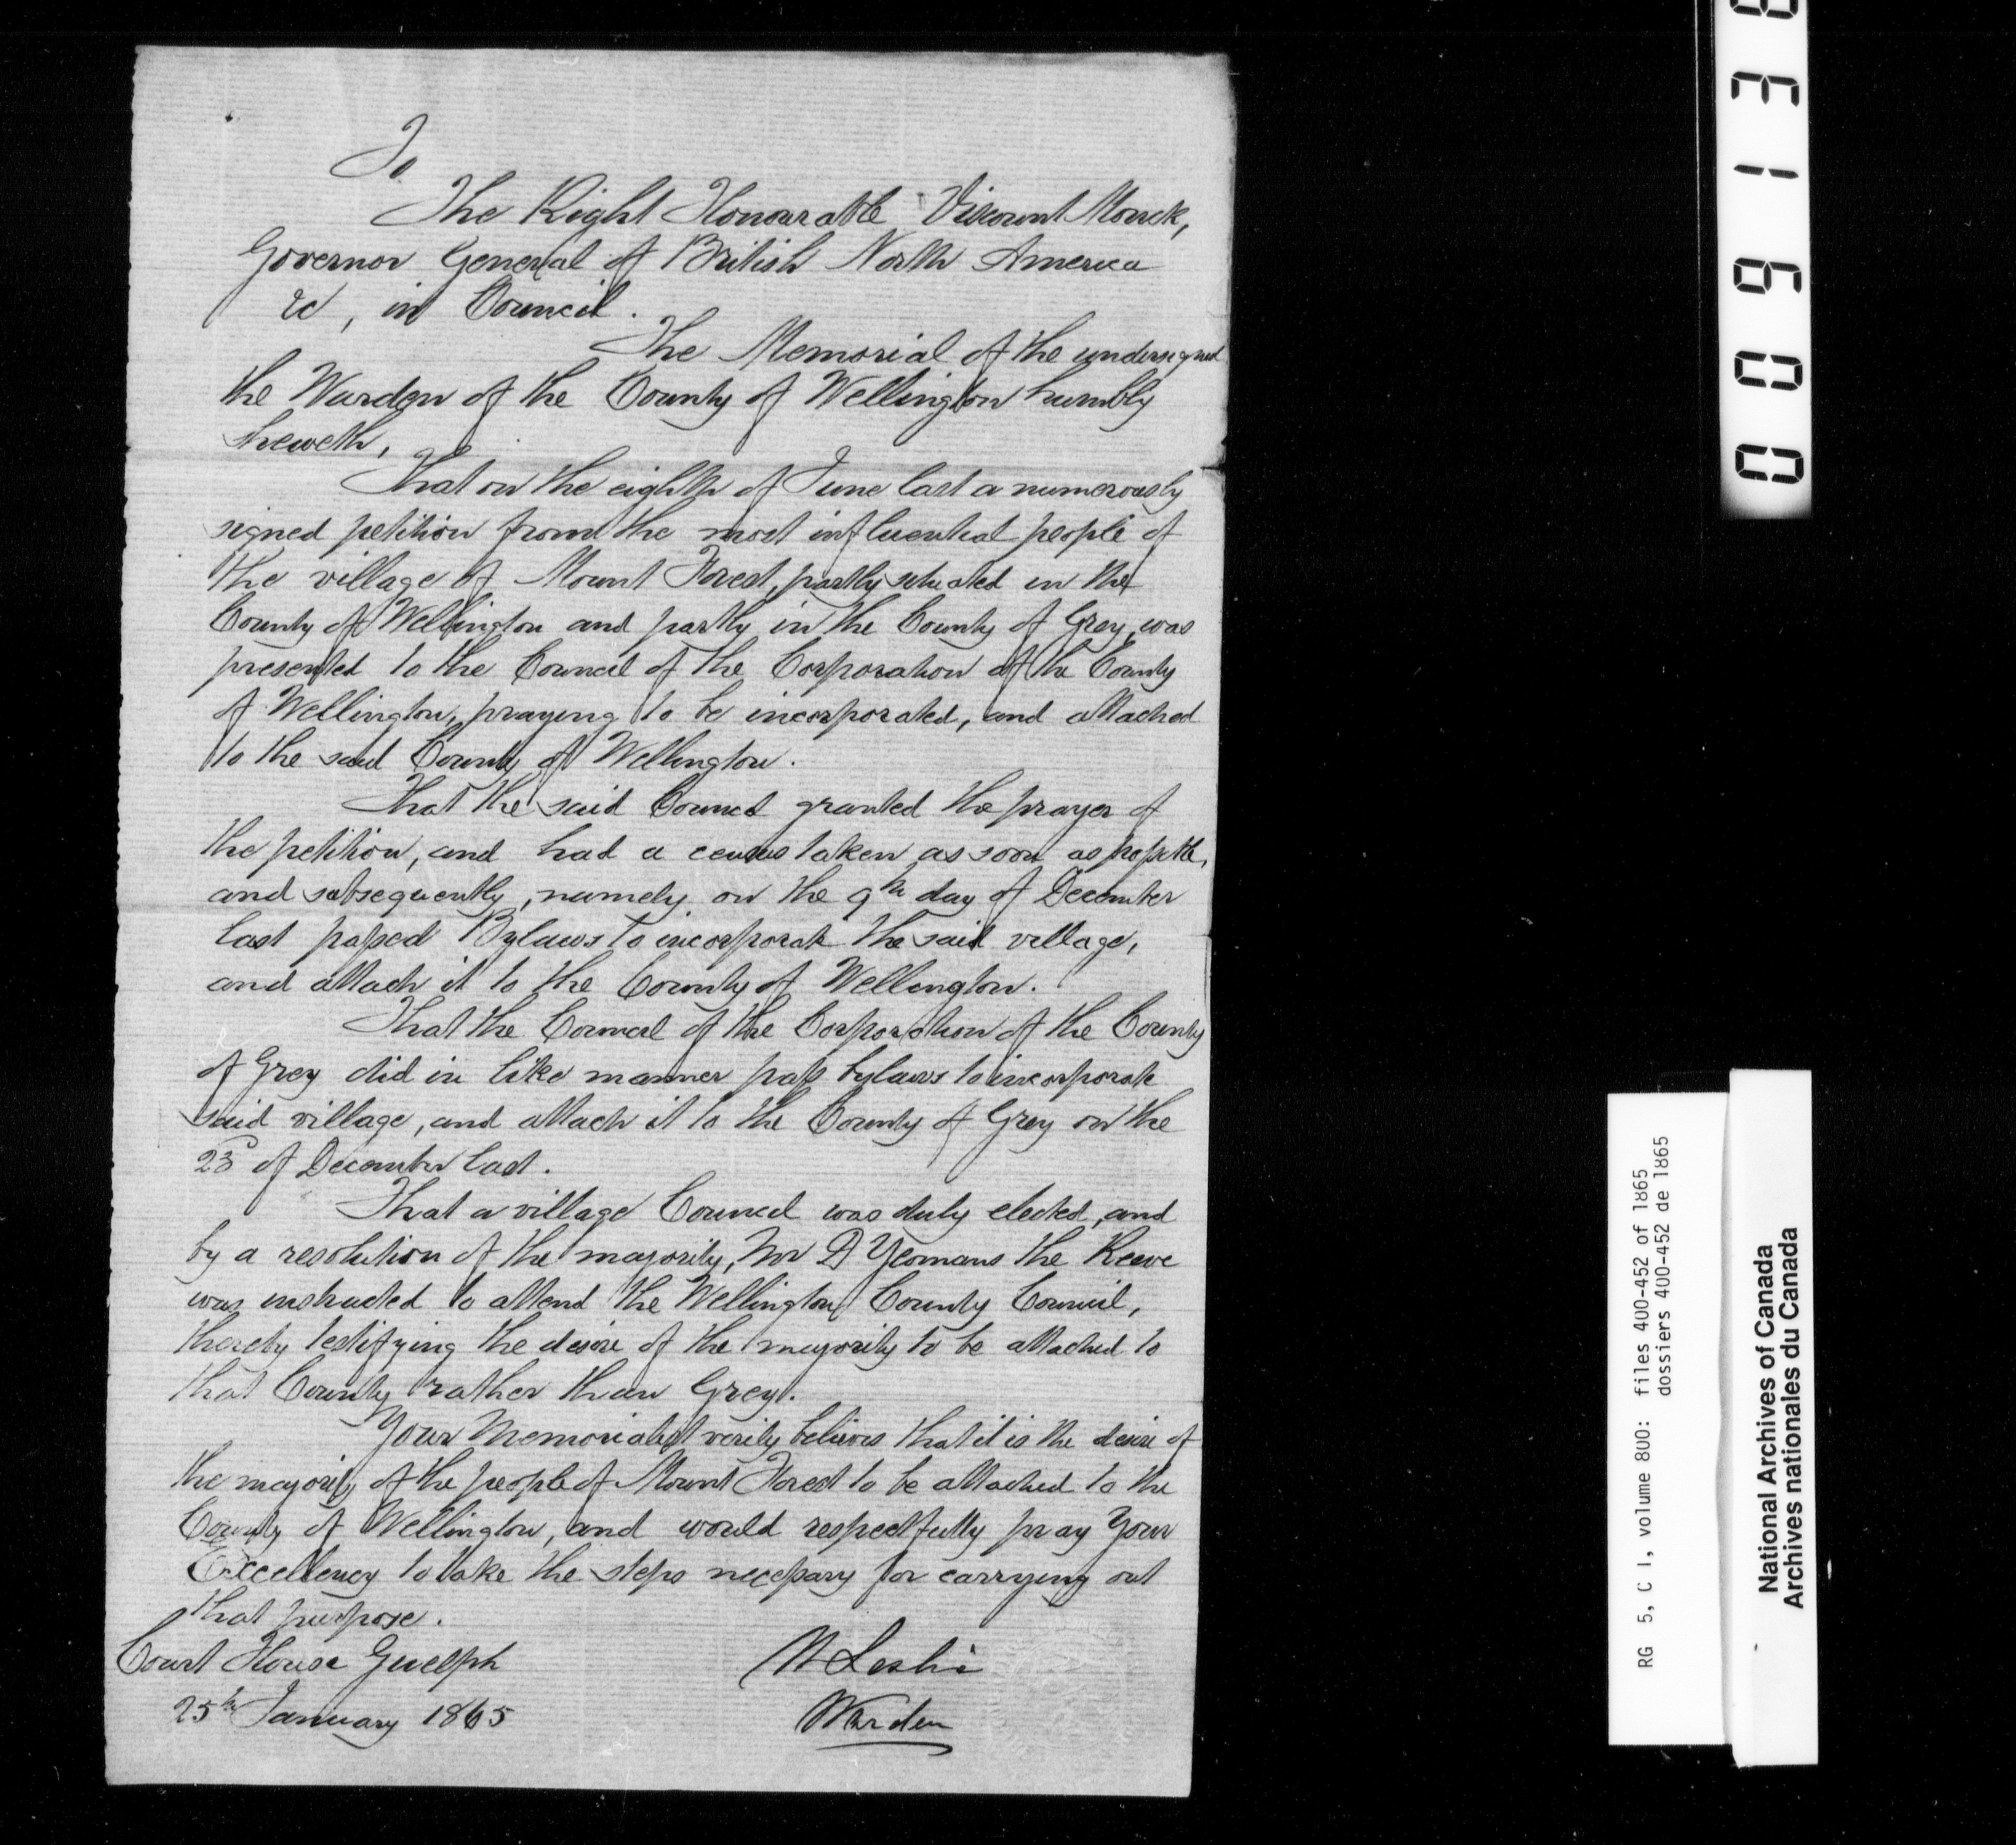 To
The Right Honourable Viscount Monck,
Governor General of British North America
&c, in Council.
The Memorial of the undersigned
the Warden of the County of Wellington humbly
sheweth,
That on the eighth of June last a numerously
signed petition from the most influential people of
the village of Mount Forest, partly situated in the
County of Wellington and partly in the County of Grey, was
presented to the Council of the Corporation of the County
of Wellington, praying to be incorporated, and attached
to the said County of Wellington.
That the said Council granted the prayer of
the petition, and had a census taken as soon as possible,
and subsequently, namely on the 9th day of December
last passed Bylaws to incorporate the said village,
and attach it to the County of Wellington.
That the Council of the Corporation of the County
of Grey did in like manner pass bylaws to incorporate
said village, and attach it to the County of Grey on the
23d of December last.
That a village Council was duly elected, and
by a resolution of the majority, Mr D Yeomans the Reeve
was instructed to attend the Wellington County Council,
thereby testifying the desire of the majority to be attached to
that County rather than Grey.
Your Memorialist verily believes that it is the desire of
the majority of the people of Mount Forest to be attached to the
County of Wellington, and would respectfully pray Your
Excellency to take the steps necessary for carrying out
that purpose.
Court House Guelph
25th January 1865
Leslie
Warden
00913
RG 5, C 1, volume 800: files 400-452 of 1865
dossiers 400-452 de 1865
National Archives of Canada
Archives nationales du Canada